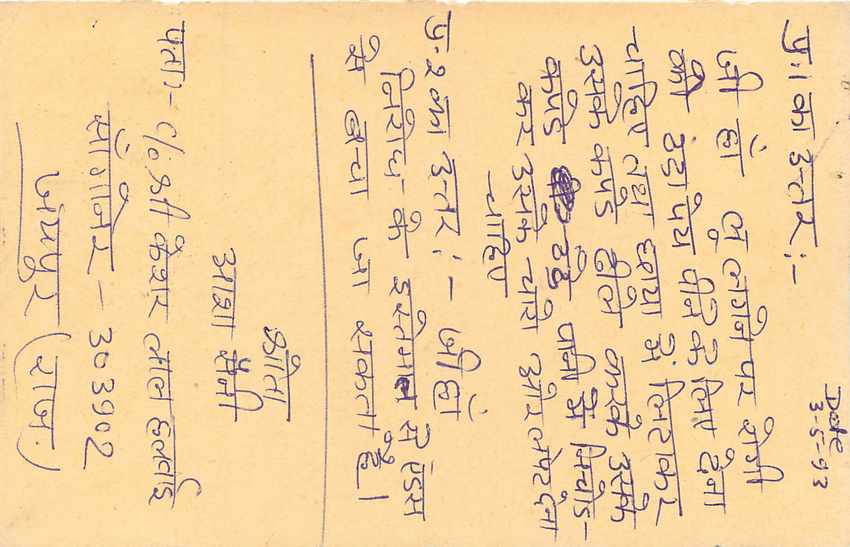 Date
3-5-93
प्र.1 का उत्तर:-
जी हाँ लू लगने पर रोगी
को ठंडा पेय पीने के लिए देना
चाहिए तथा छाया में लिटाकर
उसके कपड़े ढीले करके उसके
कपड़े ठंडे पानी में निचोड़-
कर उसके चारो ओर लपेट देना
चाहिए
प्र.2 का उत्तर:- जी हाँ
निरोध के इस्तेमाल से एड्स
से बचा जा सकता है।
श्रोता
आशा सैनी
पता- c/o. श्री केशर लाल हलवाई
सांगानेर - 303902
जयपुर (राज.)